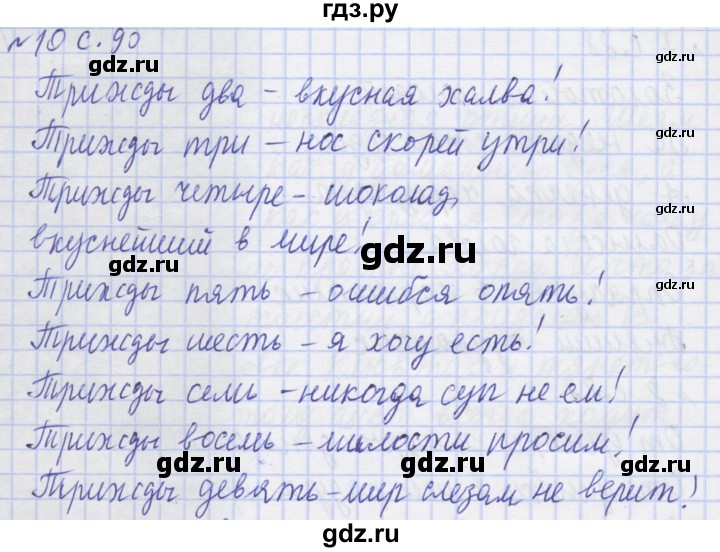 гдз.ру
№10 с. 90
Трижды два – вкусная халва!
gdz.ru gdz.ru
Трижды три – нос скорей утри!
gdz.ru gdz.ru
Трижды четыре – шоколад,
вкуснейший в мире!
gdz.ru gdz.ru gdz.ru
Трижды пять – ошибся опять!
gdz.ru gdz.ru
Трижды шесть – я хочу есть!
gdz.ru gdz.ru
Трижды семь – никогда суп не ем!
gdz.ru gdz.ru
Трижды восемь – милости просим!
gdz.ru gdz.ru
Трижды девять – мир слезам не верит!
gdz.ru